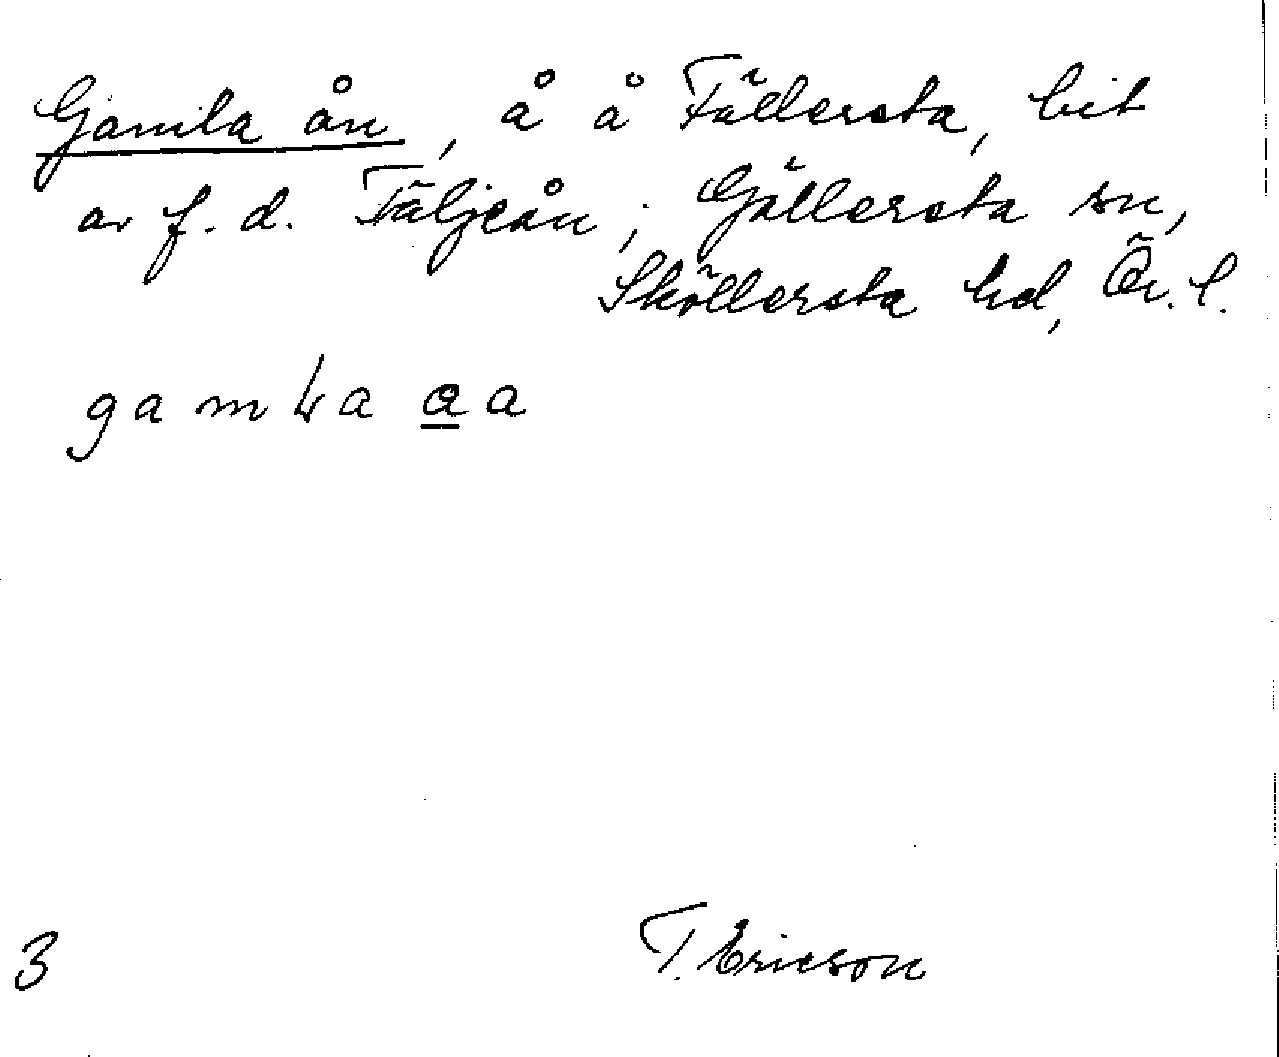 Gamla ån, å å Fällersta, bit
av f. d. Täljeån; Gällersta sn,
Sköllersta hd, Ör. l.
gamla aa
3
T. Ericson